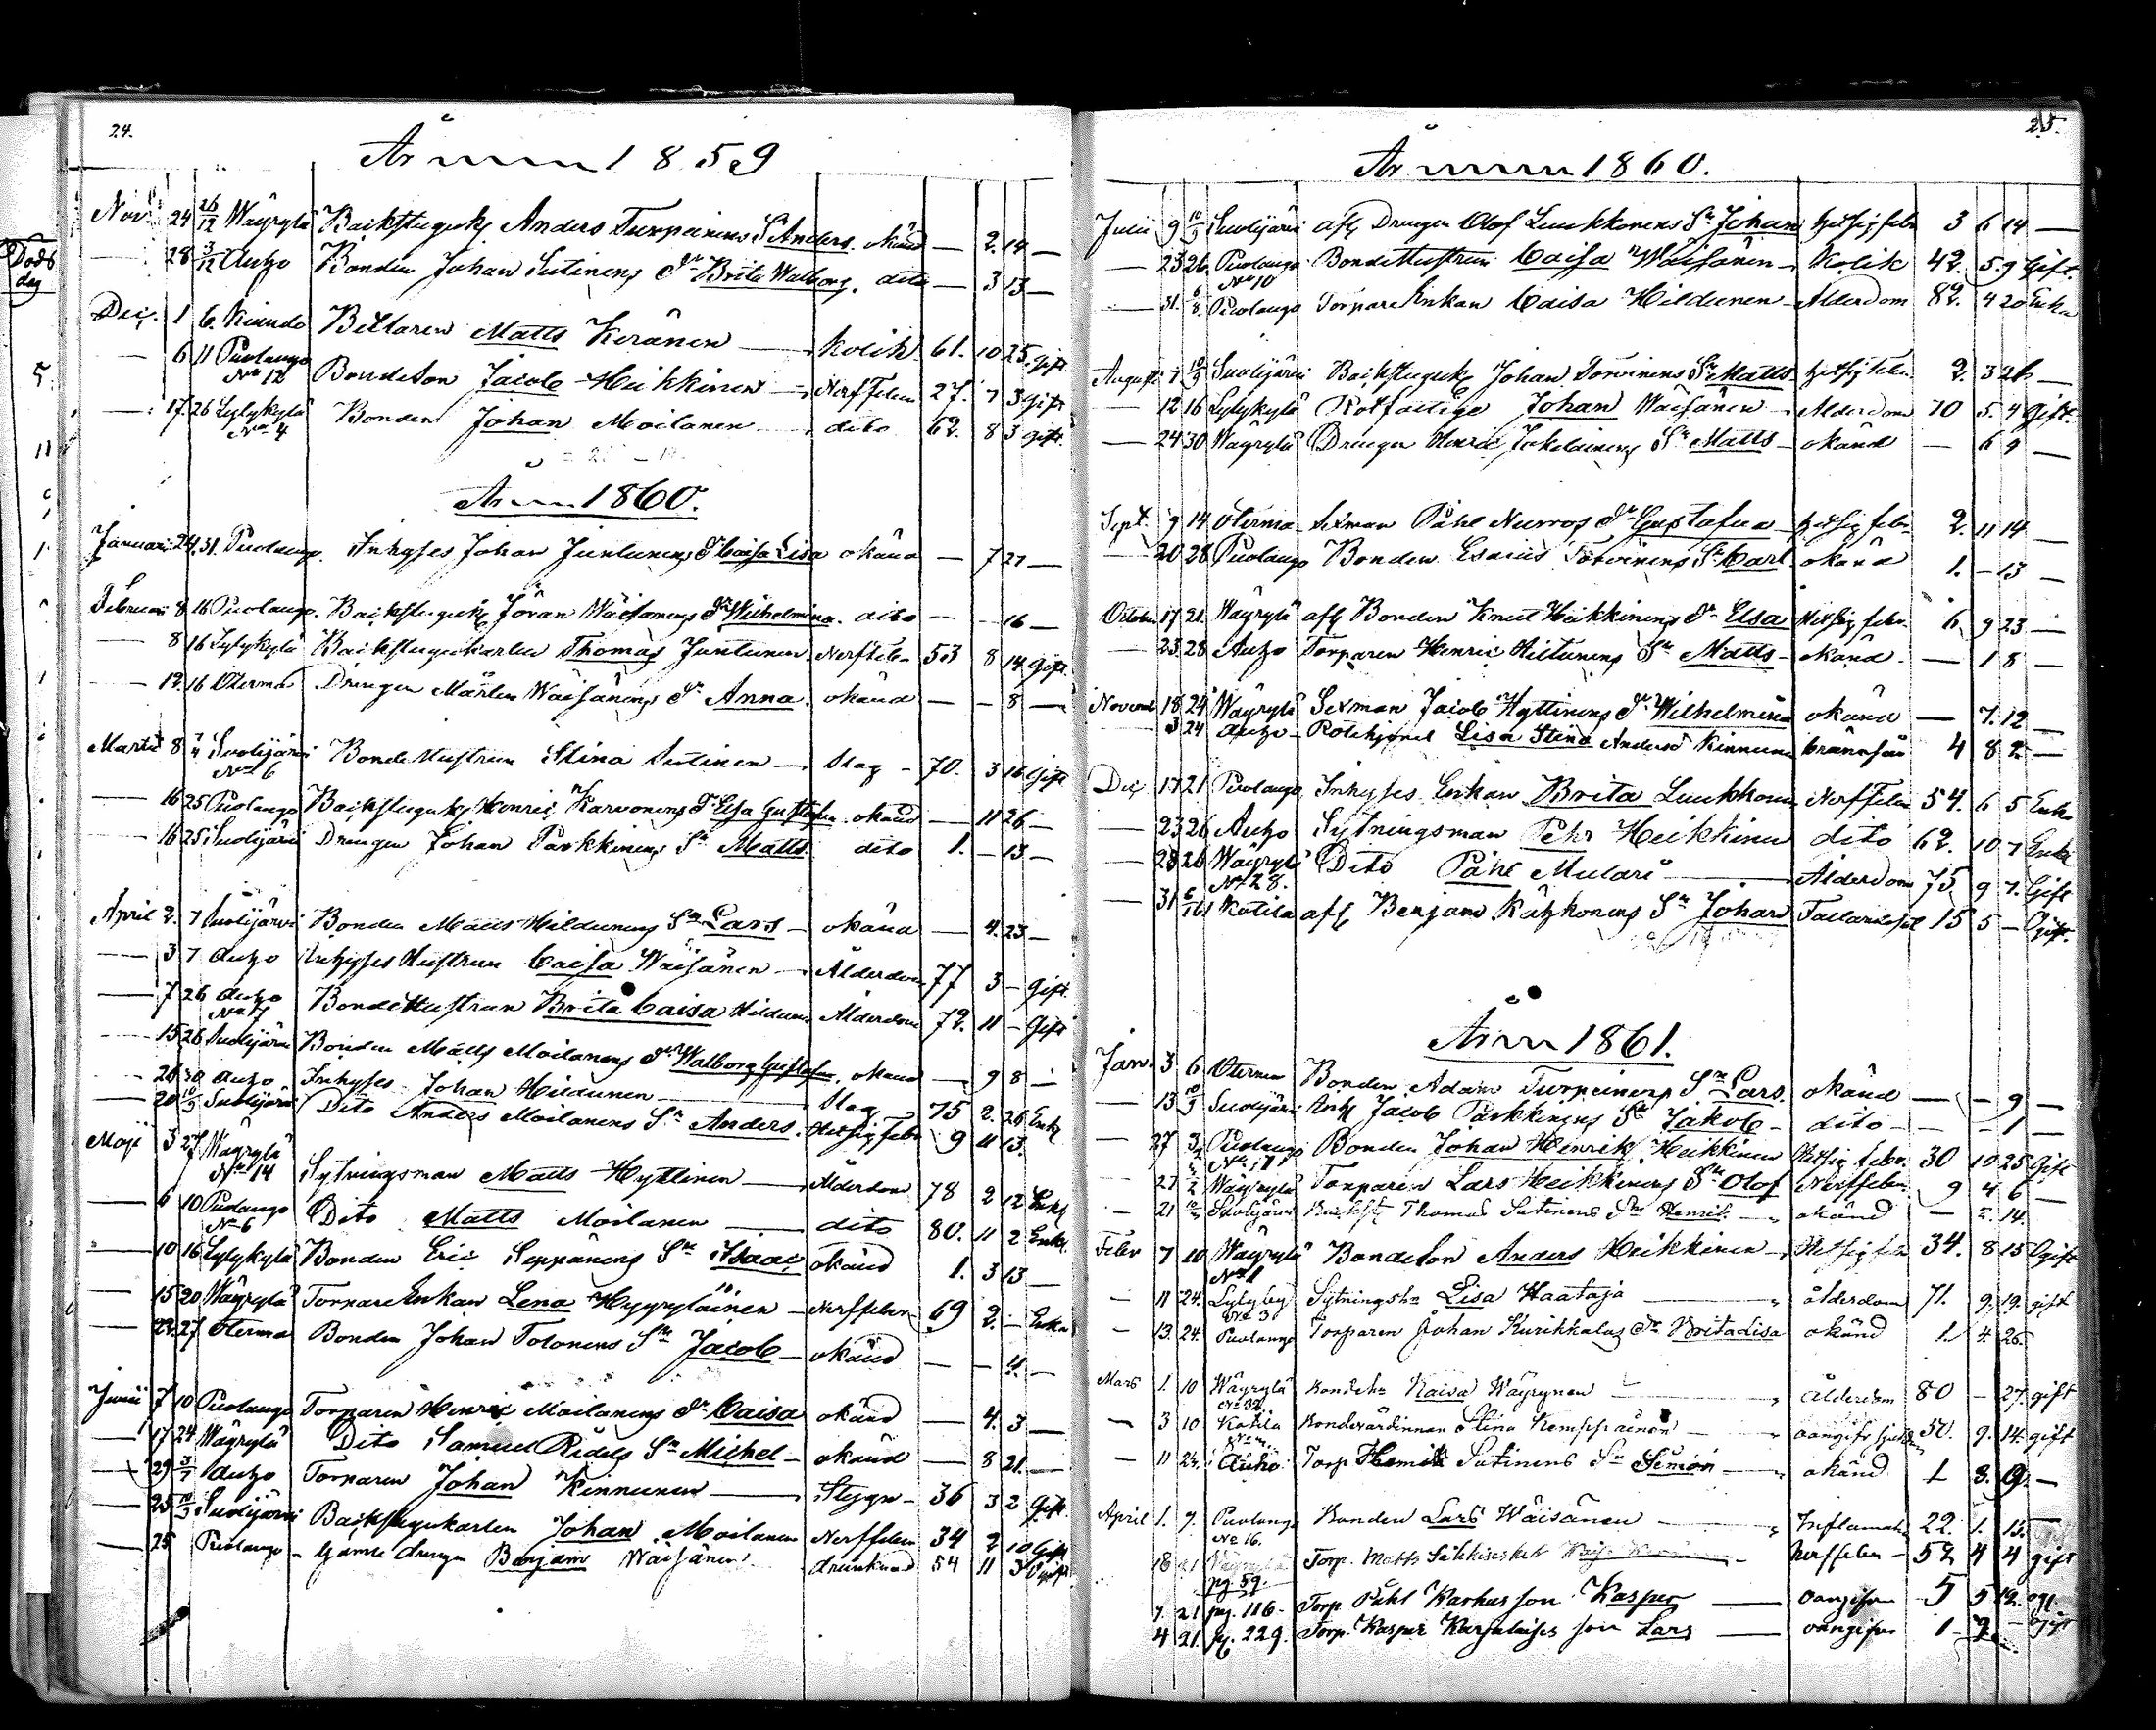 24.
År 1859
Nov. 24 26/12 Wäyrylä Backstuguk. Anders Turpeinens S. Anders. okänd — 2. 14 —
— 28 3/12 Auho Bonden Johan Sutinens Dr Brita Walborg. dito — 3 13 —
Dec. 1 6. Bettaren Matts Keränen — kolik 61. 10 25. gift
— 6 11 Puolango No 12 Bondeson Jacob Heikkinen — Nerffeber 27. 7 3 gift
— 17 26 Lylykylä No 4 Bonden Johan Moilanen — dito 62. 8 3 gift
År 1860.
Januari 24 31. Puolango. Inhyses Johan Juntunens Dr Caisa Lisa okänd — 7 27 —
Februari 8 16 Puolango. Backstuguk. Jöran Wäisänens Dr Wilhelmina. dito — — 16 —
— 8 16 Lylykylä Backstugukarlen Thomas Juntunen Nerffeb 53 8 14 gift.
— 12 16 Oterma Drengen Mårten Wäisänens Dr Anna. okänd — — 8 —
Martii 8 7/4 Suolijärvi No 6 Bonde Hustrun Stina Sutinen — Slag — 70. 3 16 Gift
— 16 25 Puolango Backstuguk. Henric Karvonens Dr Elsa Gustafva. okänd — 11 26 —
— 16 25 Suolijärvi Drengen Johan Parkkinens Sn Matts dito 1. — 13 —
April 2. 7 Suolijärvi Bonden Matts Hildunens Sn Lars — okänd — 4. 23 —
— 3 7 Auho Inhyses Hustrun Caisa Wäisänen — Ålderdom 77 3 — Gift.
— 7 26 Auho No 17 BondeHustrun Brita Caisa Hildunen Ålderdom 72. 11 — Gift
— 15 26 Suolijärvi Bonden Matts Moilanens Dr Walborg Gustafva. okänd — 9 8 —
— 26 30 Auho Inhyses Johan Hildunen — Slag 75 2. 26 Enkl
— 20 10/3 Suolijärvi Dito Anders Moilanens Sn Anders. Hetsig feber 9 11 13.
Maji 3 27 Wäyrylä No 14 Sytningsman Matts Hyttinen — Ålderdom 78 2 12 Enkl
— 6 10 Puolango No 6 Dito Matts Moilanen — dito 80. 11 2 Enkl.
— 10 16 Lylykylä Bonden Eric Seppänens Sn Isaac okänd 1. 3 13 —
— 15 20 Wäyrylä TorpareEnkan Lena Hyyryläinen — Nerffeber 69 2. — Enka
— 22. 27 Oterma Bonden Johan Tolonens Sn Jacob — okänd — — 4. —
Junii 7 10 Puolango Torparen Henric Moilanens Dr Caisa okänd — 4. 3 —
— 17 24 Wäyrylä Dito Samuel Ridels Sn Michel — okänd — 8 21. —
— 29 3/7 Auho Torparen Johan Kinnunen — Stygn — 36 3 2 Gift.
— 25 10/3 Suolijärvi Backstugukarlen Johan Moilanen Nerffeber 34 2 10 Gift
25 Puolango — Gamle drengen Benjam Wäisänen drunknad 54 11 3
25.
År 1860.
Julii 9 Suolijärvi afl. Drengen Olof Luukkonens Sn Johan hetsig feber 3 6 14 —
— 23 26. Puolango No 10 BondeHustrun Caisa Wäisänen — Kolik 42. 5. 9 Gift.
— 31. 6/8 Puolango TorpareEnkan Caisa Hildunen — Ålderdom 82. 4 20 Enka
Augusti 7 Suolijärvi Backstuguk. Johan Torvinens Sn Matts hetsig feber 2. 3 26 —
— 12 16 Lylykylä Rotfattige Johan Wäisänen — Ålderdom 70 5. 4 Gift.
— 24 30 Wäyrylä Drengen Henric Jokelainens Sn Matts — okänd — 6 9 —
Sept. 9 14 Oterma Sexman Påhl Nurros Dr Gustafva — hetsig feber 2. 11 14 —
— 20 28 Puolango Bonden Esaias Torvinens Sn Carl okänd 1. — 13 —
October 17 21. Wäyrylä afl. Bonden Knut Heikkinens Dr Elsa Hetsig feber 6 9 23 —
— 23 28 Auho Torparen Henric Hiitunens Sn Matts — okänd — 1 8 —
Novemb 18 24 Wäyrylä Sexman Jacob Hyttinens Dr Wilhelmina okänd — 7. 12 —
— 3 24 Auho — Rotehjonet Lisa Stina Andersd Kinnunen brännsår 4 8 2 —
Dec 17 21 Puolango Inhyses Enkan Brita Luukkonen Nerffeber 54. 6 5 Enka
— 23 26 Auho Sytningsman Pehr Heikkinen dito 62. 10 7 Enkl
— 23 26 Wäyrylä No 28. Dito Påhl Mulari — Ålderdom 75 9 7. Gift
— 31 6/1 61 Kotila afl. Benjam Kähkönens Sn Johan 15 5 — Ogift.
År 1861.
Jan. 3 6 Oterma Bonden Adam Turpeinens Sn Lars okänd — — 9 —
— 13 10/3 Suolijärvi Inh. Jacob Parkkinens Sn Jakob — dito — — 1 —
— 27 Puolango No 11 Bonden Johan Henrik Heikkinen Hetsig feber. 30 10 25 Gift
— 27 Wäyrylä Torparen Lars Heikkinens Sn Olof Nerffeber 9 4 6 —
— 21 Suolijärvi Thomas Sutinens Sn Henrik — okänd — 2. 14.
Febr 7 10 Wäyrylä No 1 Bondeson Anders Heikkinen — Hetsig feb 34. 8 15 Ogift
— 11 24. Lylyby No 3 Sytningsh. Lisa Haataja — ålderdom 71. 9. 19. gift
— 13. 24. Puolango Torparen Johan Kurikkalas Dr Brita Lisa okänd 1. 4 26.
Mars 1. 10 Wäyrylä No 32 Kaisa Wäyrynen — ålderdom 80 — 27. gift
— 3 10 Kotila Bondevärdinnan Stina Kemppainen — oangifv sjukdom 50. 9. 14. gift
— 11 24. Auho Torp Henrik Sutinens Sn Simon — okänd 1 3. 19. —
April 1. 7. Puolango No 16. Bonden Lars Wäisänen — Inflamat. 22. 1. 13.
18 21 pg 59. Torp. Matts Nerffeber — 52 4 4 gift
7. 21 pag. 116 — Torp Påhl Karhus son Kasper — oangifven 5 5 12. ogi.
4 21. pg. 229. Torp. Kasper son Lars — oangifven 1 9 — ogift